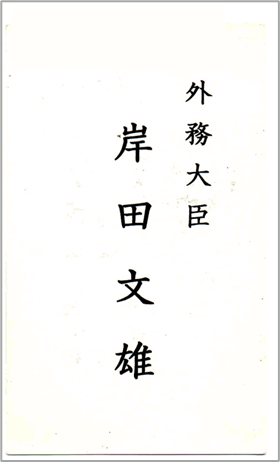 外務大臣
岸田文雄